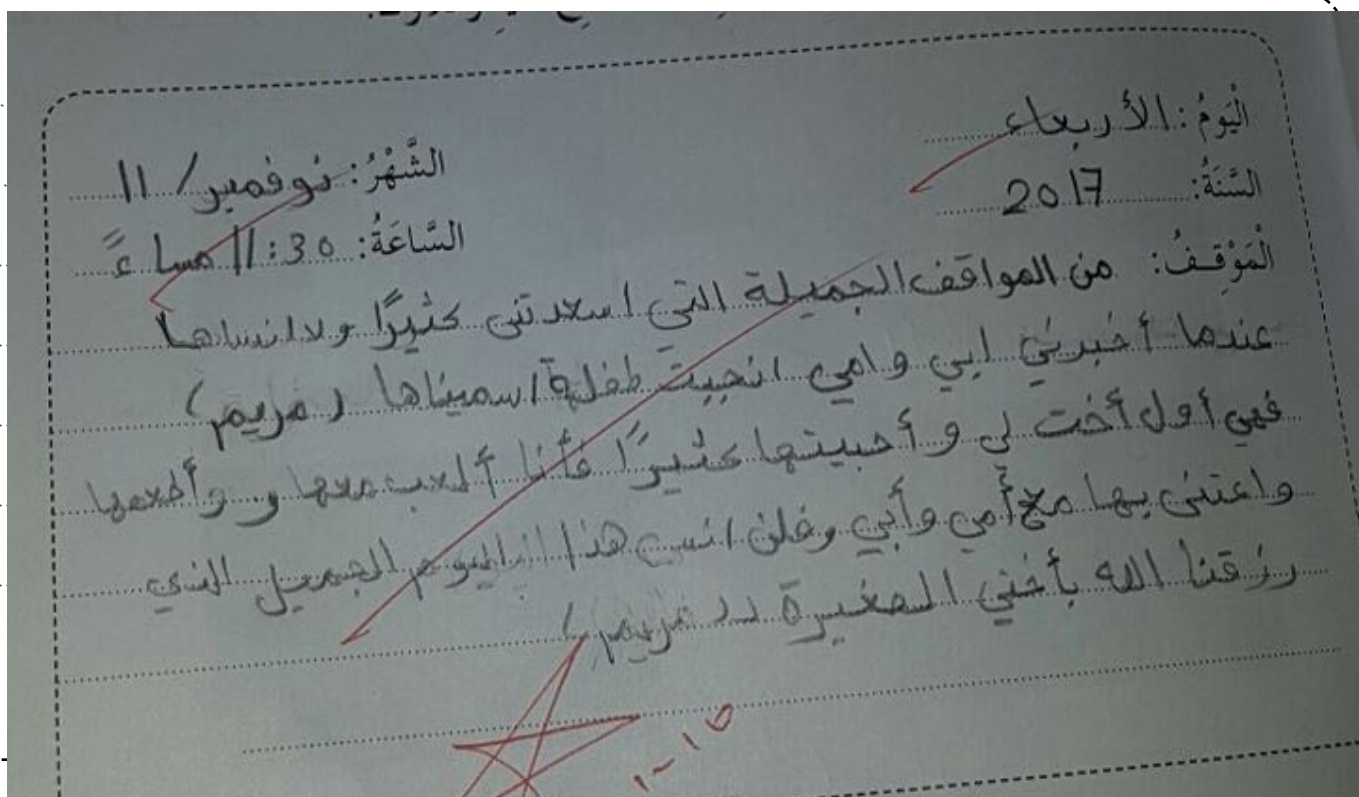 الْيَوْمُ: الأربعاء
الشَّهْرُ: نوفمبر / 11
السَّنَةُ: 2017
السَّاعَةُ: 11:30 مساءً
الْمَوْقِفُ: من المواقف الجميلة التي اسعدتني كثيرًا ولا انساها
عندما أخبرني ابي وامي انجبت طفلة اسميناها (مريم)
فهي أول أخت لي و أحببتها كثيرًا فأنا ألعب معها و وأطعمها
واعتني بها مع أمي وأبي وفلن انسى هذا اليوم الجميل الذي
رزقنا الله بأختي الصغيرة (مريم)